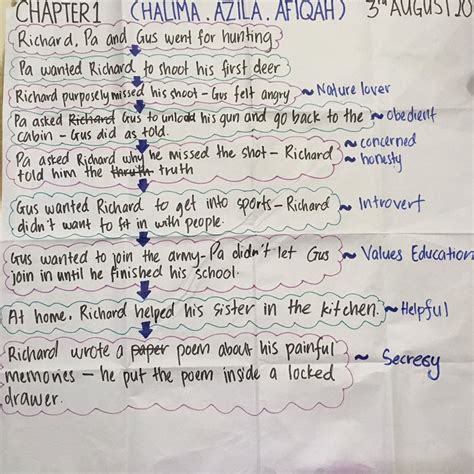 CHAPTER 1 (HALIMA . AZILA . AFIQAH) 3rd AUGUST 20
Richard, Pa and Gus went for hunting
Pa wanted Richard to shoot his first deer
Richard purposely missed his shoot - Gus felt angry ~ Nature lover
Pa asked Richard Gus to unload his gun and go back to the ~ obedient
cabin - Gus did as told.
~ concerned
Pa asked Richard why he missed the shot - Richard ~ honesty
told him the thruth truth
Gus wanted Richard to get into sports - Richard ~ Introvert
didn't want to fit in with people.
Gus wanted to join the army - Pa didn't let Gus ~ Values Education
join in until he finished his school.
At home, Richard helped his sister in the kitchen. ~ Helpful
Richard wrote a paper poem about his painful ~ Secresy
memories - he put the poem inside a locked
drawer.